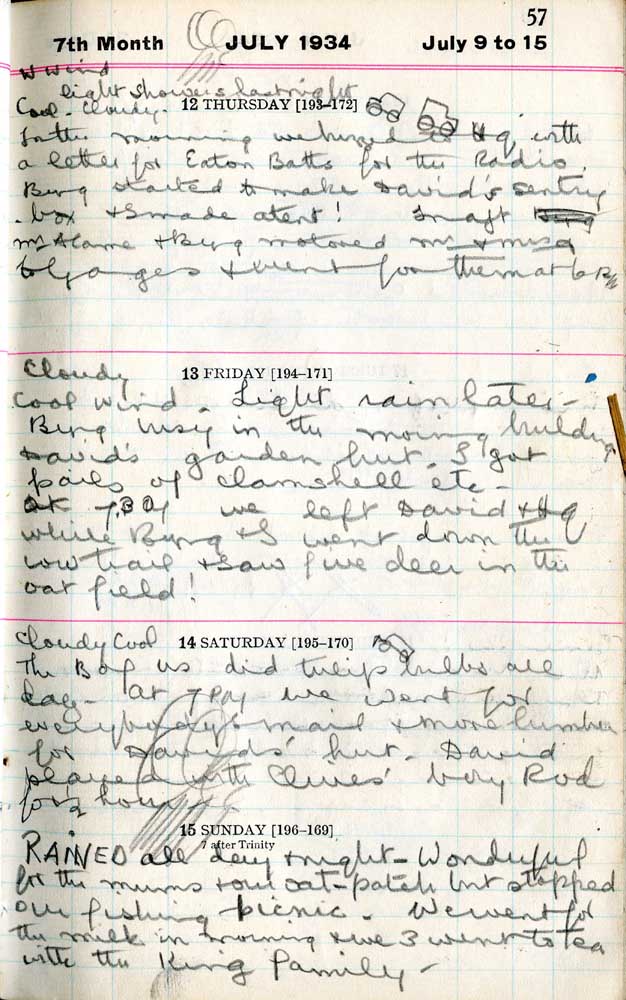 57
7th Month JULY 1934 July 9 to 15
W Wind
light showers last night
Cool - Cloudy. 12 THURSDAY [193–172]
In the morning we to Hq with
a letter for Eaton Batts for the Radio.
Byng started to make David's sentry
box + I made a tent! In aft
Mrs + Byng motored Mr + Mrs
to Ganges + went for them at 6 PM
Cloudy 13 FRIDAY [194–171]
Cool wind. Light rain later -
Byng busy in the morning building
David's garden hut. I got
pails of clamshell etc -
At 7.30 we left David + Hq
while Byng + I went down the
cow trail + saw five deer in the
oat field!
Cloudy Cool 14 SATURDAY [195–170]
The B of us did tulip bulbs all
day - at 7 PM we went for
everybody's mail + more lumber
for Davids' hut. David
played with Clives' boy Rod
for ½ hour
15 SUNDAY [196–169]
7 after Trinity
RAINED all day + night - Wonderful
for the mums + our oat-patch but stopped
our fishing picnic. We went for
the milk in morning + we 3 went to tea
with the King family -